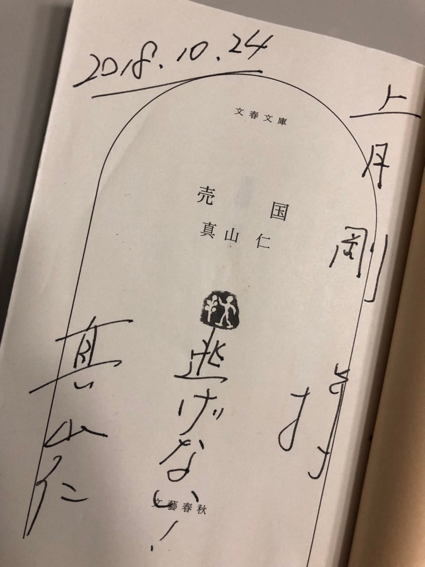 2018.10.24
上月剛
文春文庫
売国
真山仁
逃げない!
真山仁
文藝春秋